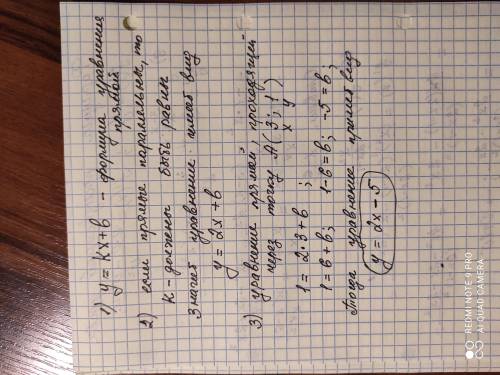 1) y = kx + b - формула уравнения
прямой
2) если прямые параллельны, то
k - должны быть равны
Значит уравнение имеет вид
y = 2x + b
3) уравнение прямой, проходящей
через точку A(3; 1)
x y
1 = 2·3 + b ;
1 = 6 + b; 1-6 = b; -5 = b;
Тогда уравнение примет вид
y = 2x - 5
REDMI NOTE 9 PRO
AI QUAD CAMERA